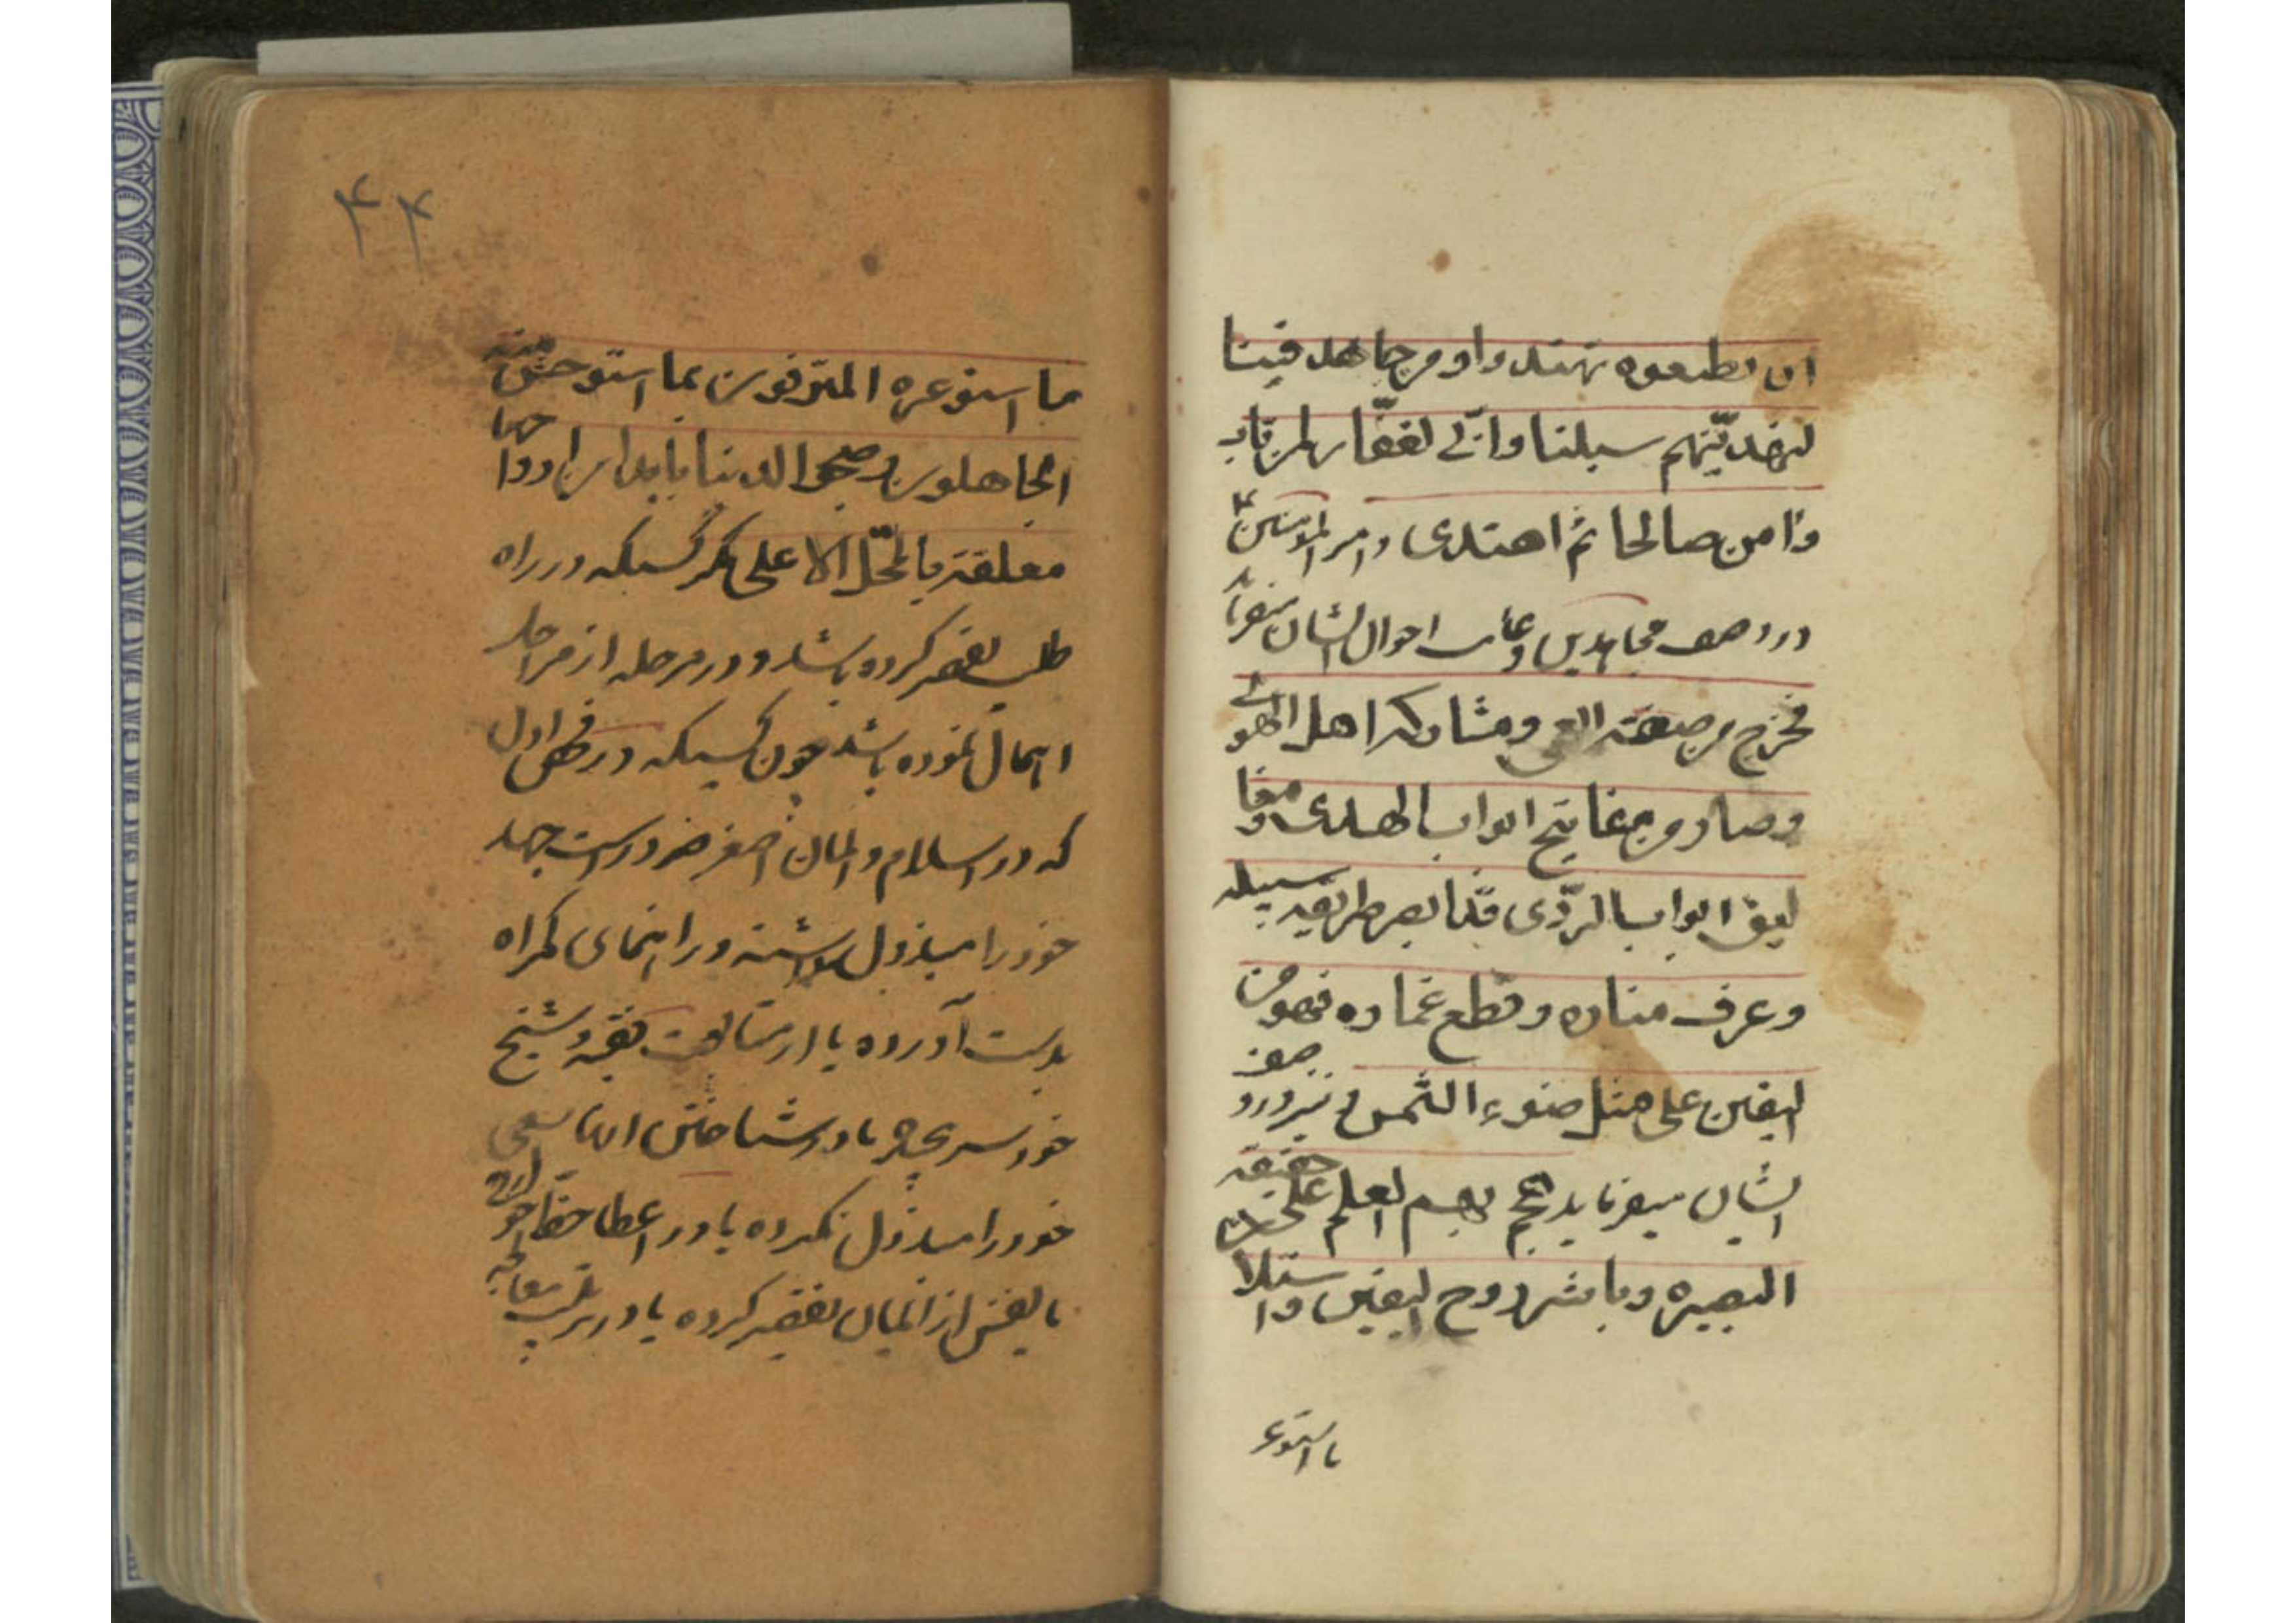 ان تطیعوه تهتدوا و من جاهد فینا
لنهدینّهم سبلنا وانّی لغفّار لمن تاب
وامن صالحا ثم اهتدی و امیر المؤمنین ع
در وصف مجاهدین و غایت احوال ایشان میفرماید
فخرج من صفة العمی ومشارکه اهل الهوی
وصار من مفاتیح ابواب الهدی و مغا
لیق ابواب الرّدی قد ابصر طریقه سبیله
وعرف مناره وقطع غماره فهو من
الیقین علی مثل ضوء الشمس و نیز در وصف
ایشان میفرماید هجم بهم العلم علی حقیقه
البصیره وباشروا روح الیقین واستلا
ما استوعر
۴۴
ما استوعره المترفون بما استوحش منه
الجاهلون وصحبوا الدنیا بابدان ارواحها
معلقة بالمحلّ الاعلی مگر کسیکه در راه
طلب تقصیر کرده باشد و در مرحله از مراحل
اهمال نموده باشد چون کسیکه در فحص اول
که در اسلام و ایمان اصغر ضرور است جهد
خود را مبذول نداشته و راهنمای گمراه
بدست آورده یا از متابعت فقیه و شیخ
خود سر پیچد یا در شناختن آنها سعی
خود را مبذول نکرده یا در اعطا حظّ جوارح
یا نفس از ایمان تقصیر کرده یا در ترتیب معالجه